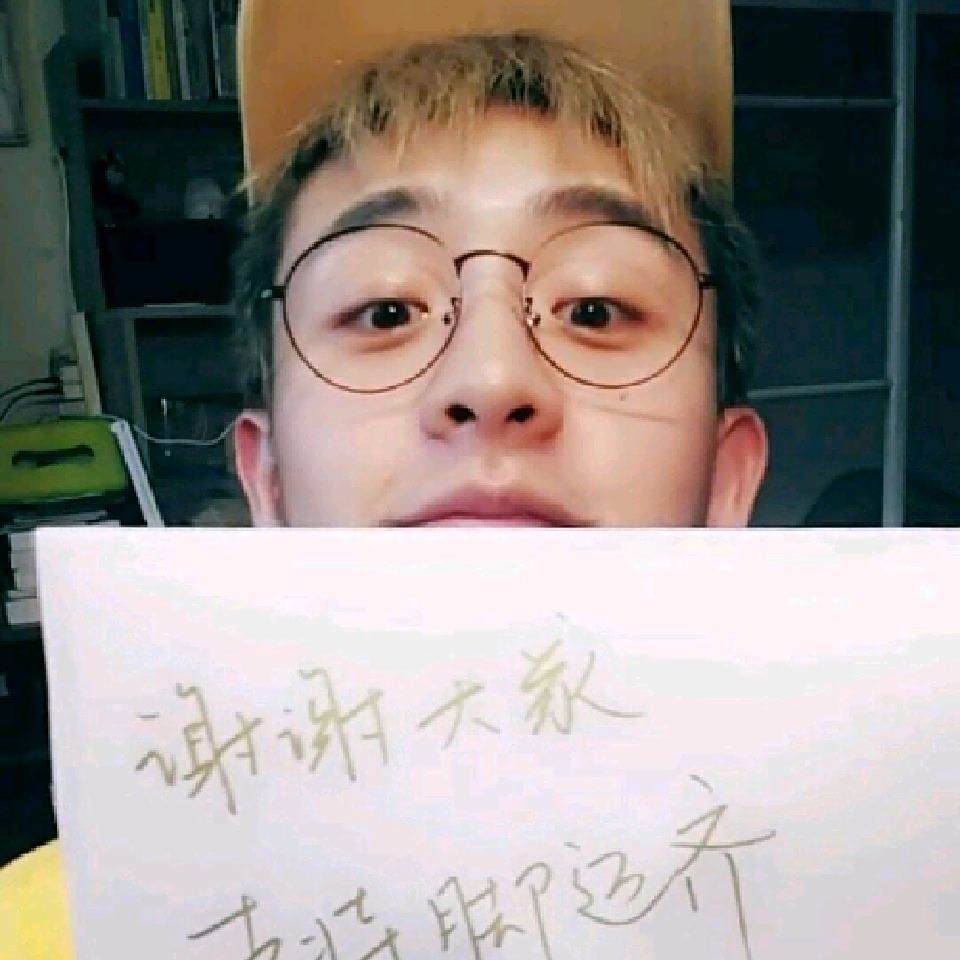 谢谢大家
支持脚运齐